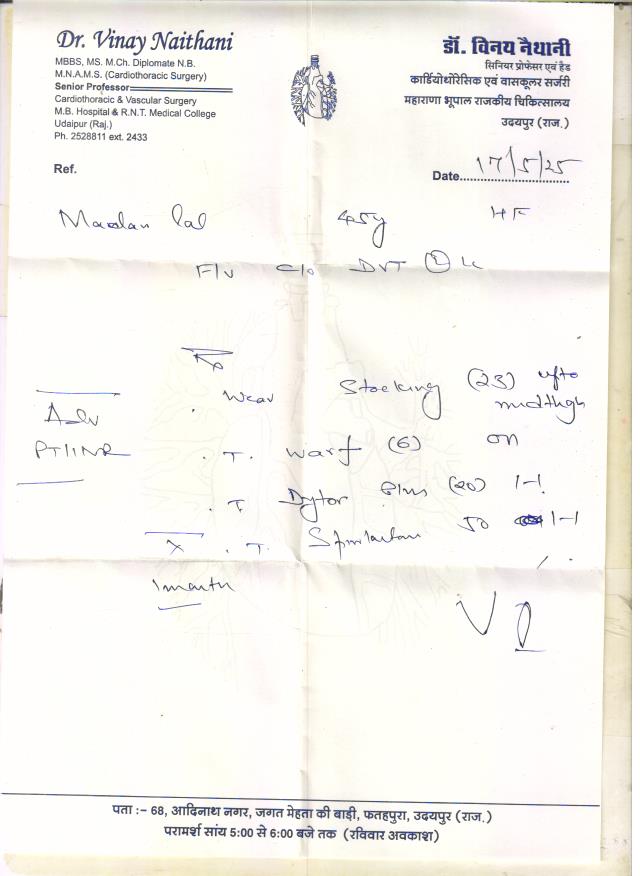 Dr. Vinay Naithani
MBBS, MS. M.Ch. Diplomate N.B.
M.N.A.M.S. (Cardiothoracic Surgery)
Senior Professor
Cardiothoracic & Vascular Surgery
M.B. Hospital & R.N.T. Medical College
Udaipur (Raj.)
Ph. 2528811 ext. 2433
डॉ. विनय नैथानी
सिनियर प्रोफेसर एवं हैड
कार्डियोथोरेसिक एवं वासकूलर सर्जरी
महाराणा भूपाल राजकीय चिकित्सालय
उदयपुर (राज.)
Ref.
Date 17/5/25
Madan Lal 45y
F/U C/O DVT
Rx
Wear Stocking (23) upto midthigh
Adv
PT/INR
T. Warf (6) on
T. Dytor Plus (20) 1-1
T. 50 1-1
X
1 month
पता :– 68, आदिनाथ नगर, जगत मेहता की बाड़ी, फतहपुरा, उदयपुर (राज.)
परामर्श सांय 5:00 से 6:00 बजे तक (रविवार अवकाश)